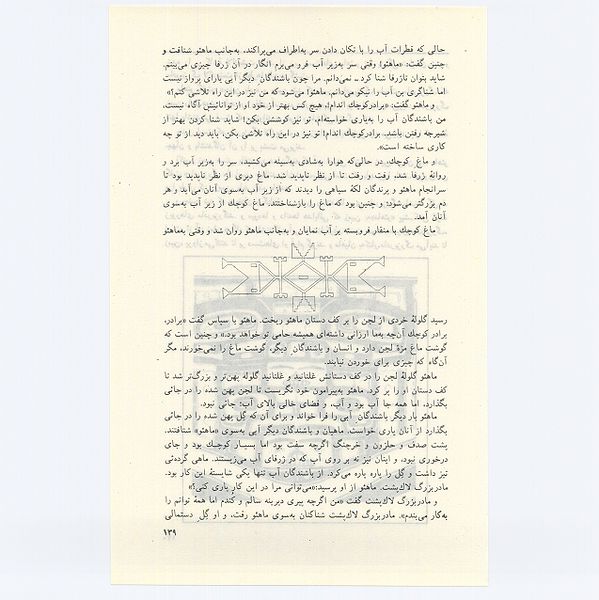 حالی که قطرات آب را با تکان دادن سر به‌اطراف می‌پراکند، به‌جانب ماهئو شتافت و
چنین گفت: «ماهئو! وقتی سر به‌زیر آب فرو می‌برم انگار در آن ژرفا چیزی می‌بینم.
شاید بتوان تاژرفا شنا کرد ـ نمی‌دانم. مرا چون باشندگان دیگر آبی یارای پرواز نیست
اما شناگری بن آب را نیکو می‌دانم. ماهئو! می‌شود که من نیز در این راه تلاشی کنم؟»
و ماهئو گفت: «برادرکوچك اندام! هیچ کس بهتر از خود او از توانائیش آگاه نیست،
من باشندگان آب را به‌یاری خواسته‌ام، تو نیز کوششی بکن! شاید شنا کردن بهتر از
شیرجه رفتن باشد. برادرکوچك اندام! تو نیز در این راه تلاشی بکن، باید دید از تو چه
کاری ساخته است».
و ماغ کوچك، در حالی‌که هوارا به‌شادی به‌سینه می‌کشید، سر را به‌زیر آب برد و
روانهٔ ژرفا شد، رفت و رفت تا از نظر ناپدید شد. ماغ دیری از نظر ناپدید بود تا
سرانجام ماهئو و پرندگان لکهٔ سیاهی را دیدند که از زیر آب به‌سوی آنان می‌آید و هر
دم بزرگتر می‌شود؛ و چنین بود که ماغ را بازشناختند. ماغ کوچك از زیر آب به‌سوی
آنان آمد.
ماغ کوچك با منقار فروبسته بر آب نمایان و به‌جانب ماهئو روان شد و وقتی به‌ماهئو
رسید گلولهٔ خردی از لجن را بر کف دستان ماهئو ریخت. ماهئو با سپاس گفت «برادر،
برادر کوچك آن‌چه به‌ما ارزانی داشته‌ای همیشه حامی تو خواهد بود.» و چنین است که
گوشت ماغ مزهٔ لجن دارد و انسان و باشندگان دیگر، گوشت ماغ را نمی‌خورند، مگر
آن‌گاه که چیزی برای خوردن نیابند.
ماهئو گلولهٔ لجن را در کف دستانش غلتانید و غلتانید گلوله پهن‌تر و بزرگ‌تر شد تا
کف دستان او را پر کرد. ماهئو به‌پیرامون خود نگریست تا لجن پهن شده را در جائی
بگذارد، اما همه جا آب بود و آب، و فضای خالی بالای آب؛ جائی نبود.
ماهئو بار دیگر باشندگان آبی را فرا خواند و برای آن که گل پهن شده را در جائی
بگذارد از آنان یاری خواست، ماهیان و باشندگان دیگر آبی به‌سوی «ماهئو» شتافتند.
پشت صدف و حلزون و خرچنگ اگرچه سفت بود اما بسیار کوچك بود و جای
درخوری نبود، و اینان نیز نه بر روی آب که در ژرفای آب می‌زیستند. ماهی گرده‌ئی
تیز داشت و گل را پاره پاره می‌کرد. از باشندگان آب تنها یکی شایستهٔ این کار بود.
مادربزرگ لاك‌پشت. ماهئو از او پرسید: «می‌توانی مرا در این کار یاری کنی؟»
و مادربزرگ لاك‌پشت گفت «من اگرچه پیری دیرینه سالم و کُندم اما همهٔ توانم را
به‌کار می‌بندم». مادربزرگ لاك‌پشت شناکنان به‌سوی ماهئو رفت، و او گل دستمالی
۱۳۹